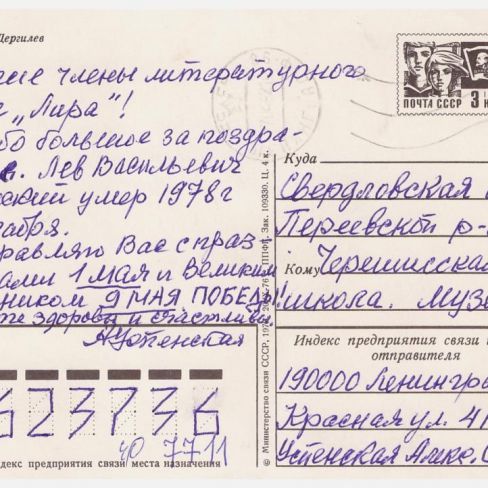 Дергилев
ие члены литературного
"Лира"!
бо большое за поздра-
Лев Васильевич
кий умер 1978 г
абря.
равляю Вас с праз
ами 1 мая и Великим
ником 9 МАЯ ПОБЕДЫ!
те здоровы и счастливы.
АУспенская
ПОЧТА СССР 3
К
Куда
Свердловская
Переевской р-
Кому Черемисская
школа. Музе
Индекс предприятия связи и
отправителя
190000 Ленинград
Красная ул. 41
Успенская Алекс.
623736
40 7711
декс предприятия связи места назначения
© Министерство связи СССР, 197
ППФГ. Зак. 109330. Ц. 4 к.